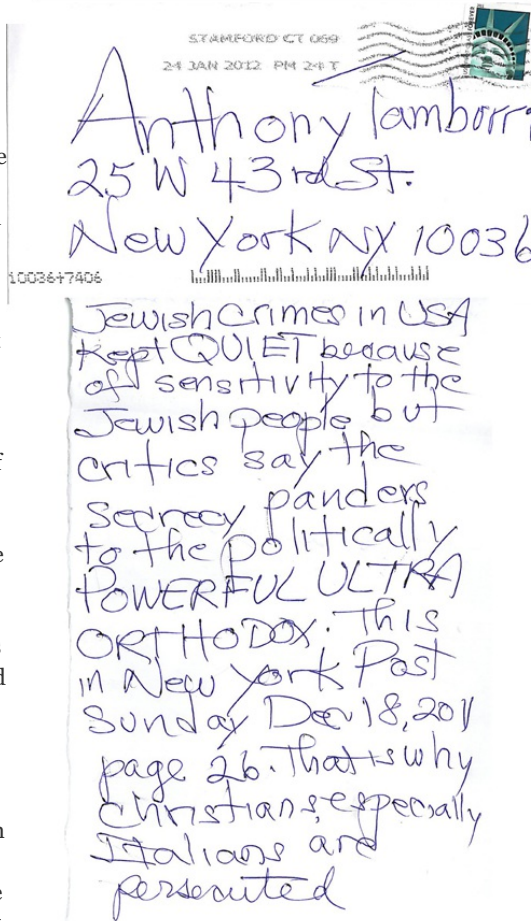 STAMFORD CT 069
24 JAN 2012 PM 24 T
Anthony Tamburri
25 W 43rd St.
New York NY 10036
10036+7406
Jewish Crimes in USA
Kept QUIET because
of sensitivity to the
Jewish people but
critics say the
secrecy panders
to the politically
POWERFUL ULTRA
ORTHODOX. This
in New York Post
Sunday Dec 18, 2011
page 26. That is why
Christians, especially
Italians are
persecuted